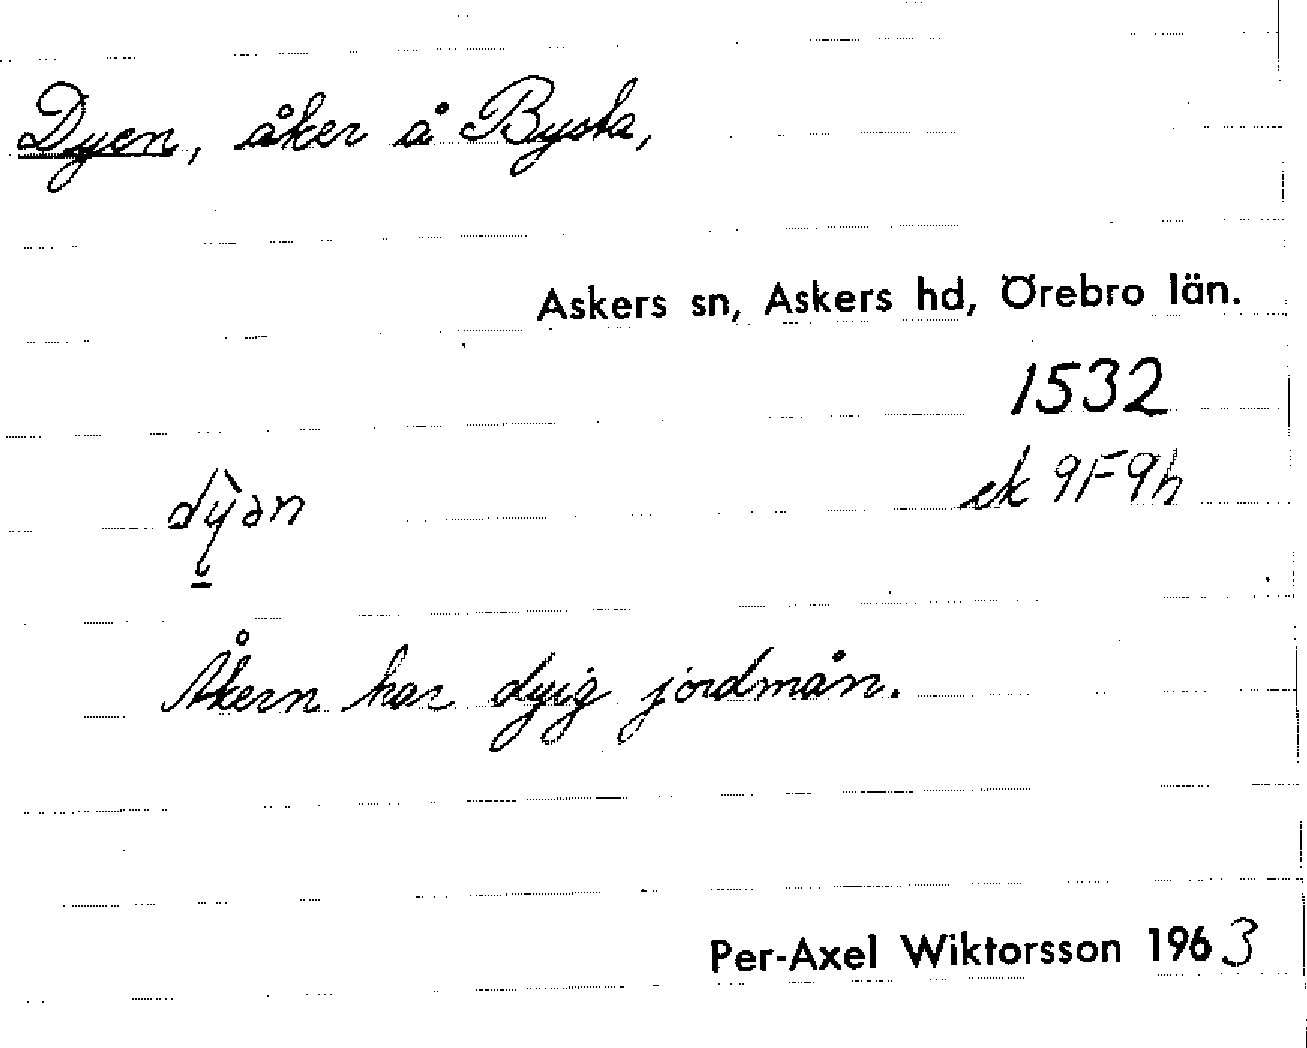 Dyen, åker å Bysta,
Askers sn, Askers hd, Örebro län.
1532
ek 9F9h
dỳ̠ən
Åkern har dyig jordmån.
Per-Axel Wiktorsson 1963